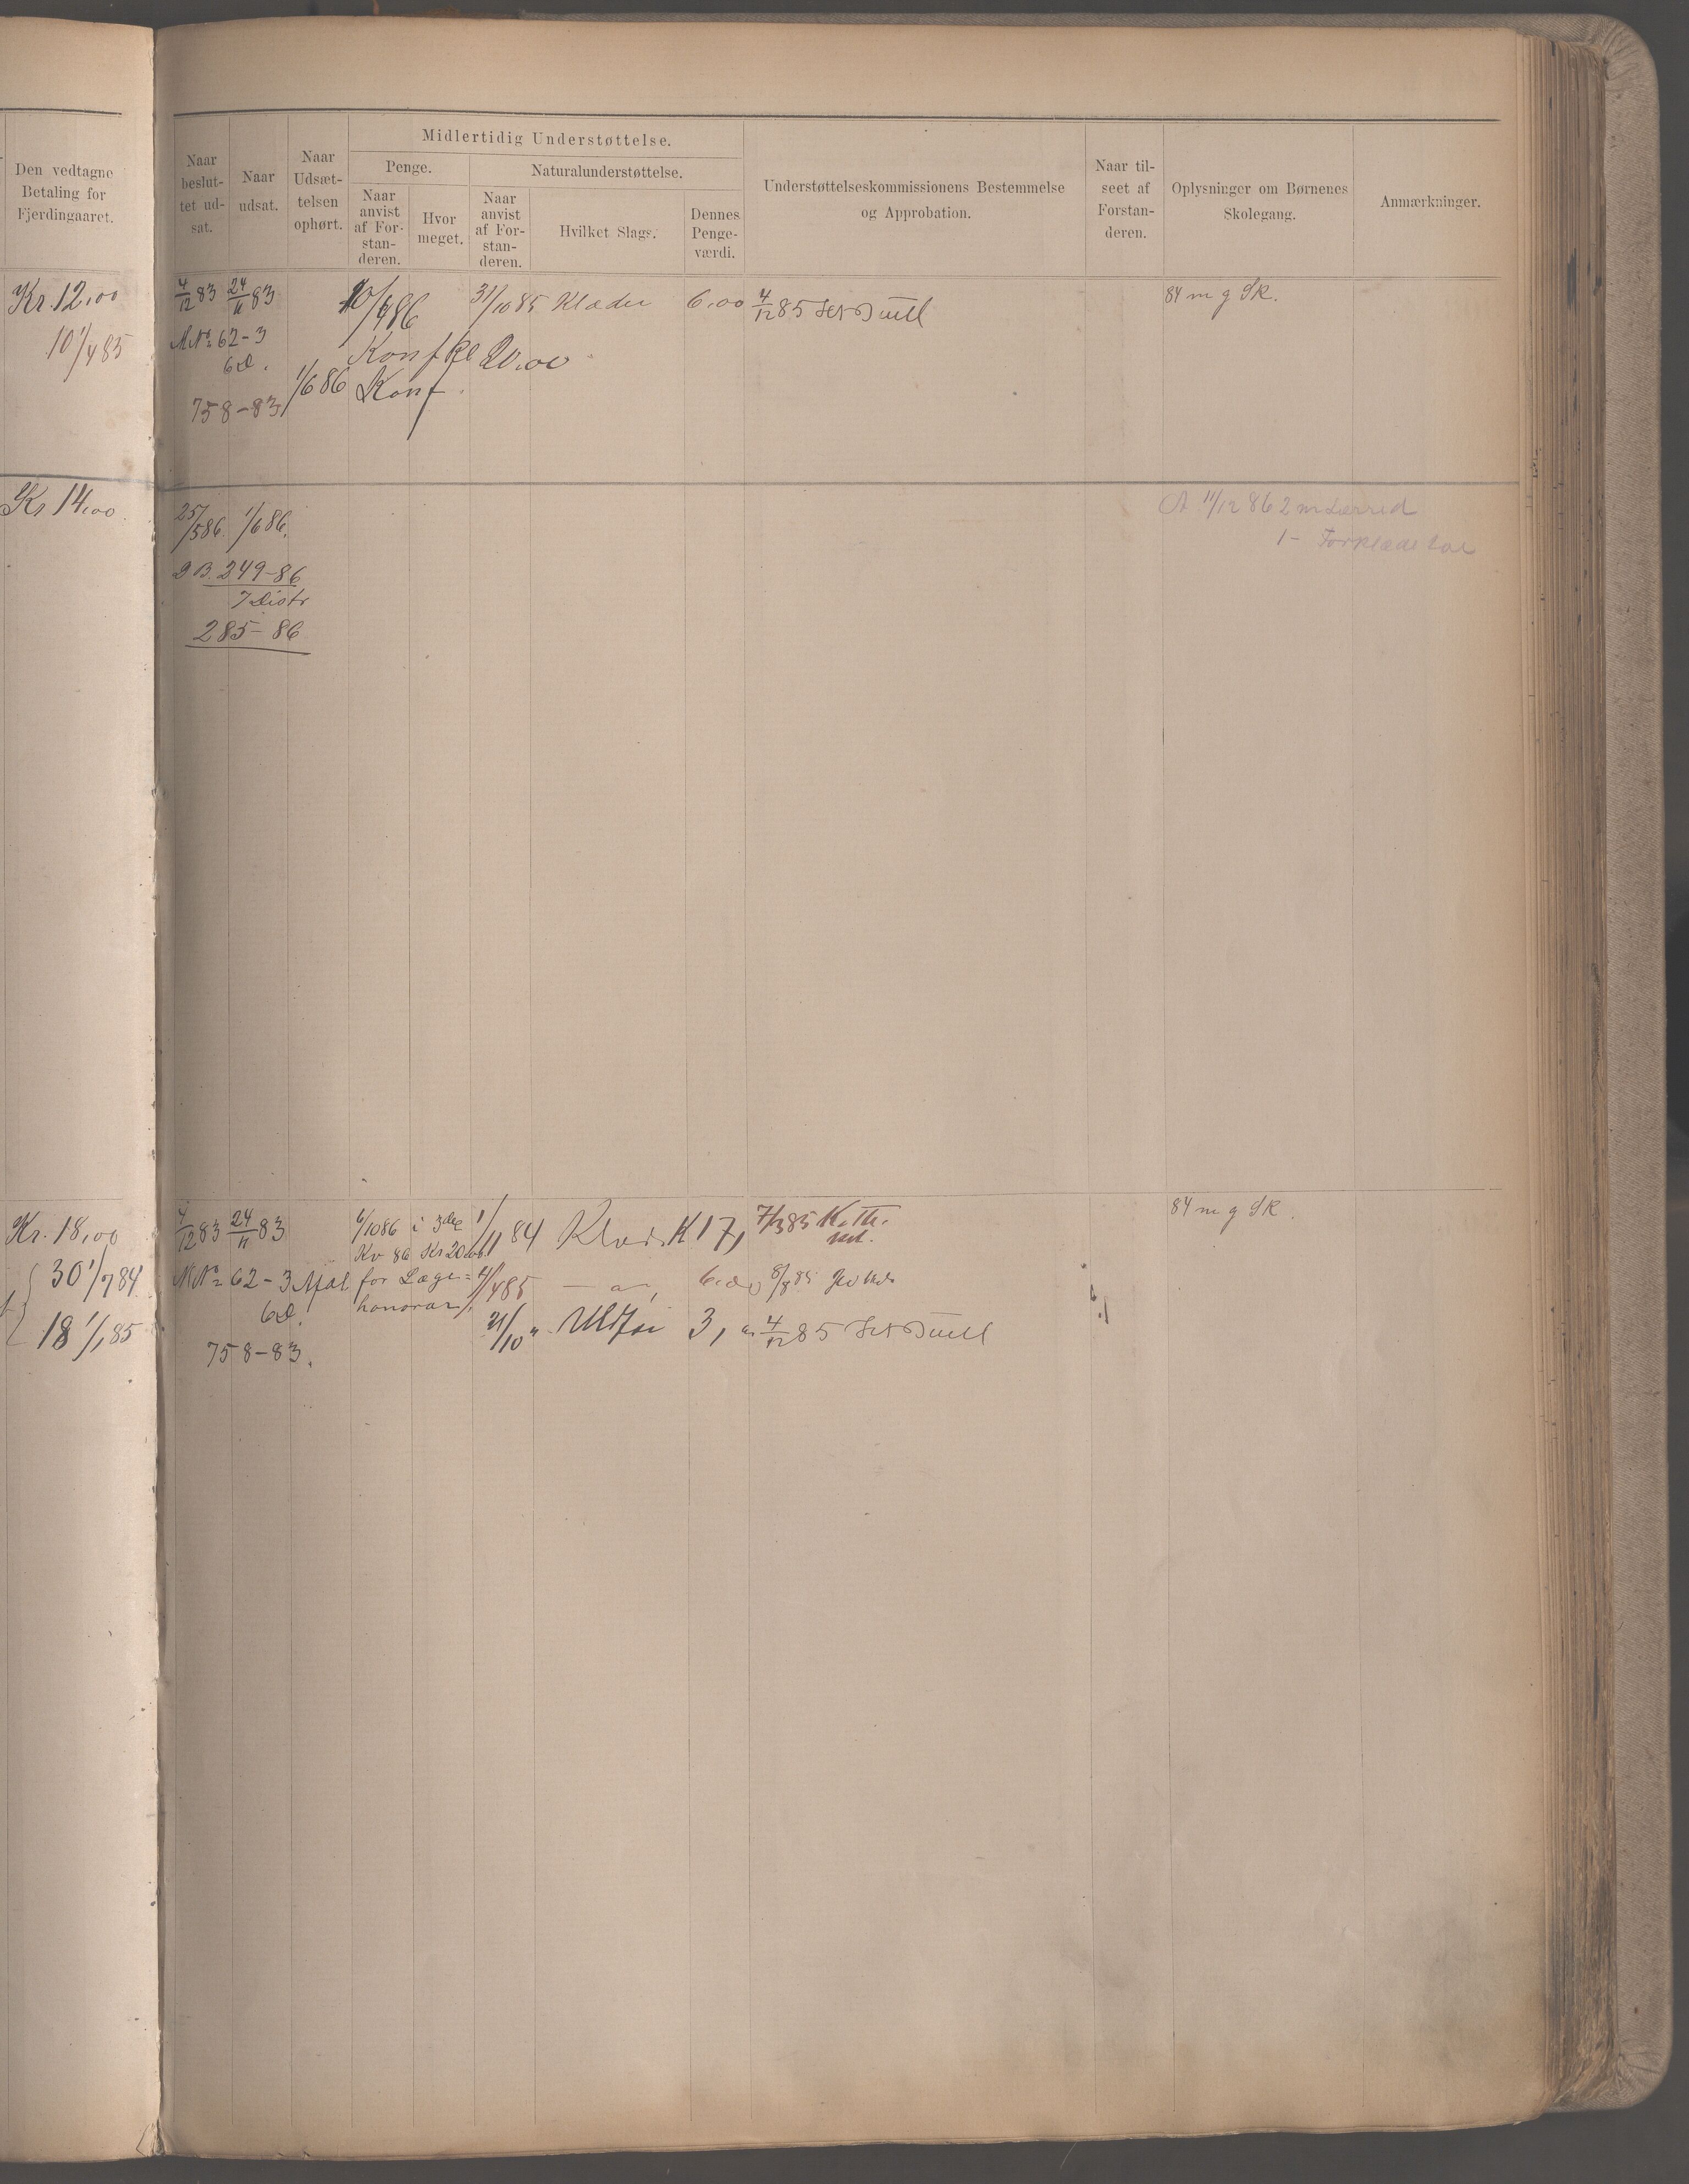 Den vedtagne
Betaling for
Fjerdingaaret.
Naar
beslut-
tet ud-
sat.
Naar
udsat.
Naar
Udsæt-
telsen
ophørt.
Midlertidig Understøttelse.
Penge.
Naar
anvist
af For-
stan-
deren.
Hvor
meget.
Naturalunderstøttelse.
Naar
anvist
af For-
stan-
deren.
Hvilket Slags.
Dennes
Penge-
værdi.
Understøttelseskommissionens Bestemmelse
og Approbation.
Naar til-
seet af
Forstan-
deren.
Oplysninger om Børnenes
Skolegang.
Anmærkninger.
Kr. 12,00
10 1/4 85
4/12 83 24/11 83
M No 62-3
6 D.
758-83
1/6 86
10/4 86
Konf Kl 20.00
Konf.
31/10 85 Klæder 6,00
4/12 85
84 m g SK.
Kr 14,00
25/5 86. 1/6 86.
D B. 249-86
7 Distr
285-86
A 11/12 86 2 m Lærred
1 - Forklæde
Kr. 18,00
30 1/7 84
18 1/1 85
4/12 83 24/11 83
M No 62-3
6 D.
758-83.
6/10 86 i 3die
Kv 86 Kr 20
for Læge=
honorar
1/11 84 K 17,
7/3 85
4/4 85
8/8 85
21/10 " 3,
4/12 85
84 m g SK.